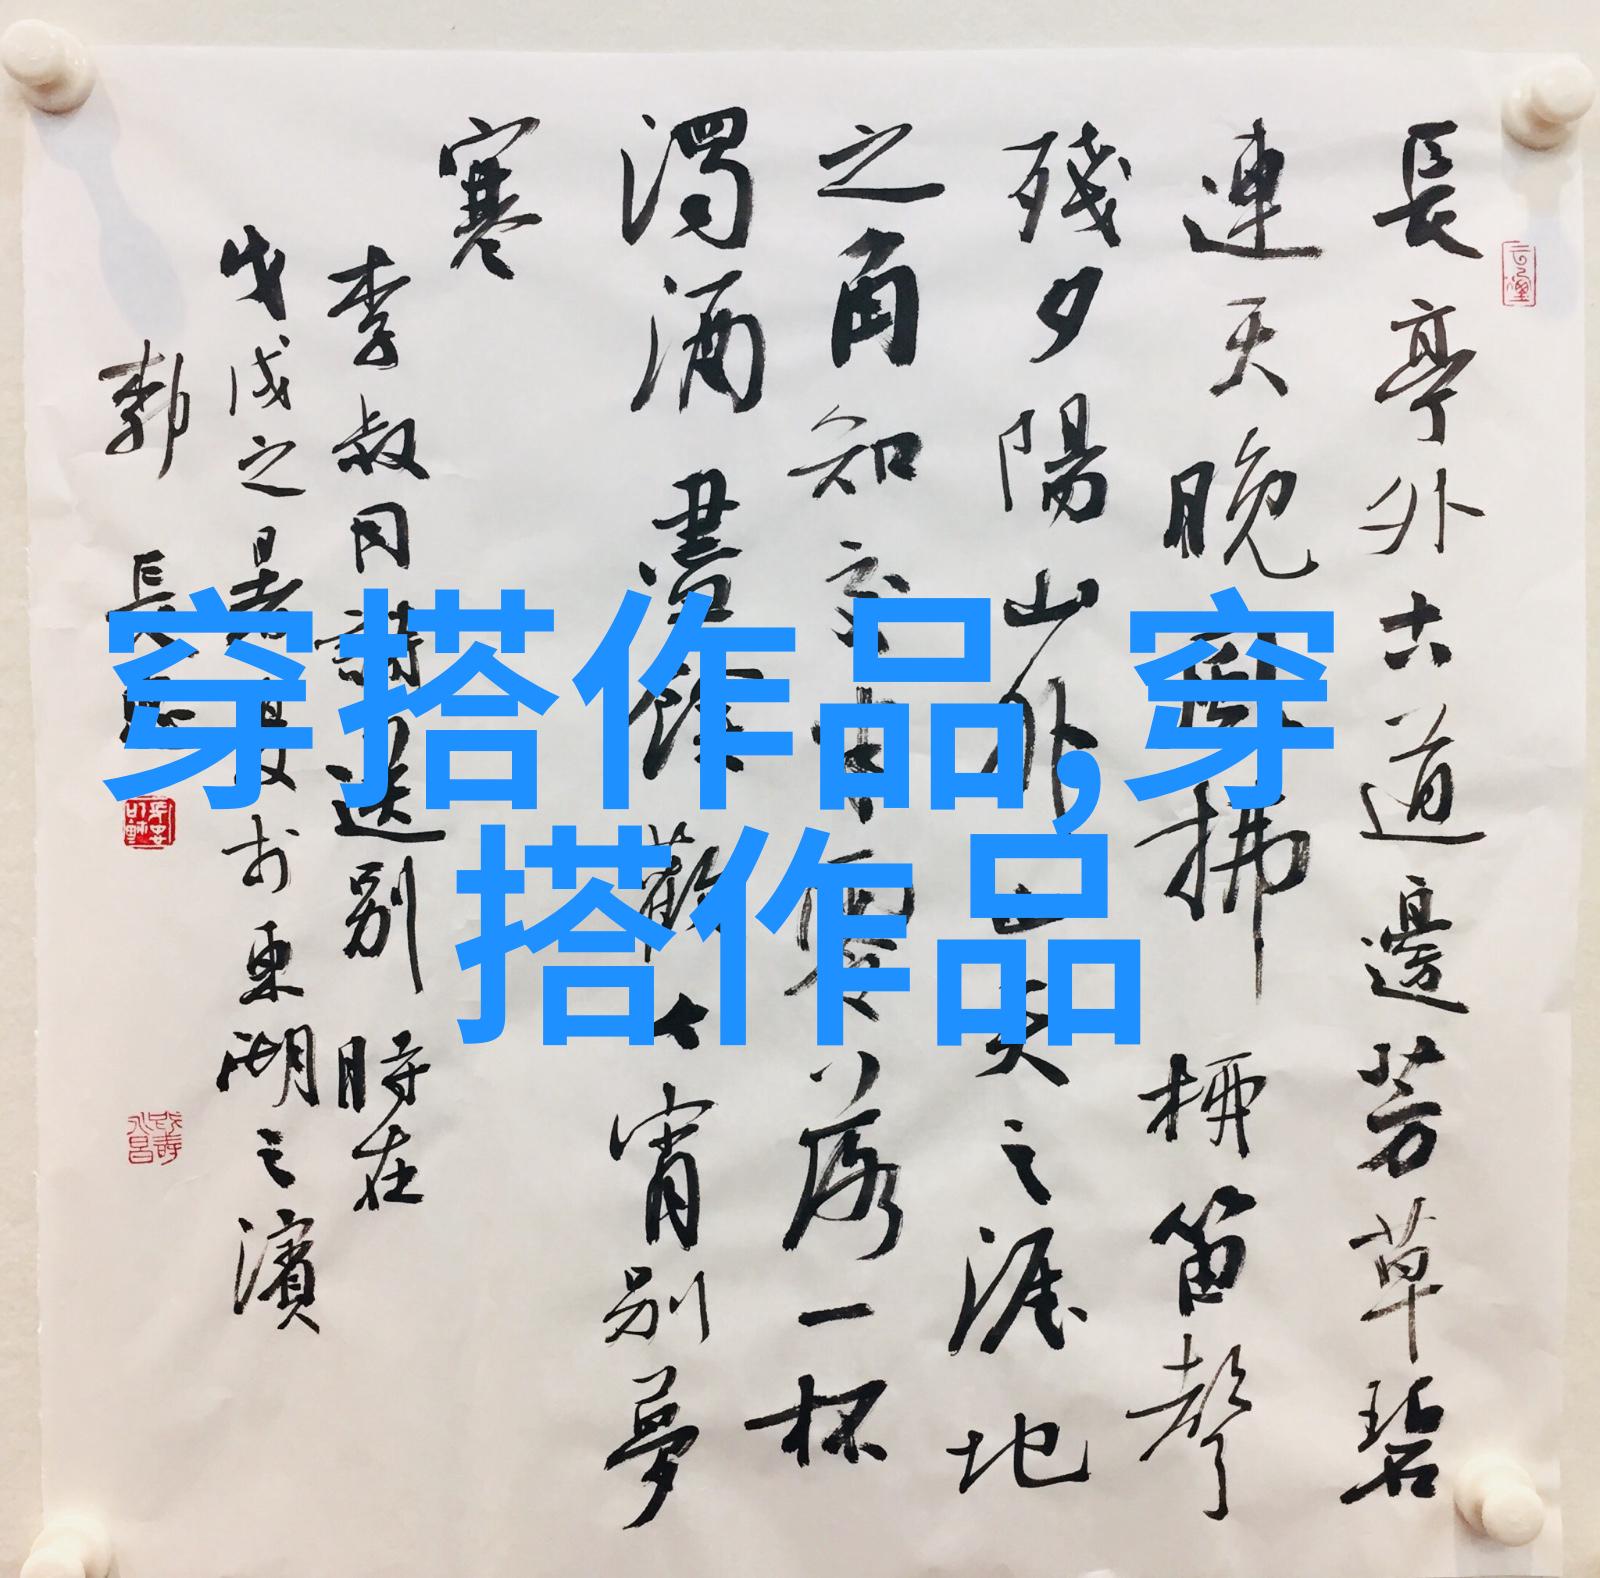 長亭外古道邊芳草碧
連天晚風拂柳笛聲
殘夕陽山外山天之涯地
之角知交半零落一杯
濁酒盡餘歡今宵別夢
寒
李叔同詩送別 時在
戊戌之暑夏於東湖之濱
郭 長
穿搭作品,穿
搭作品